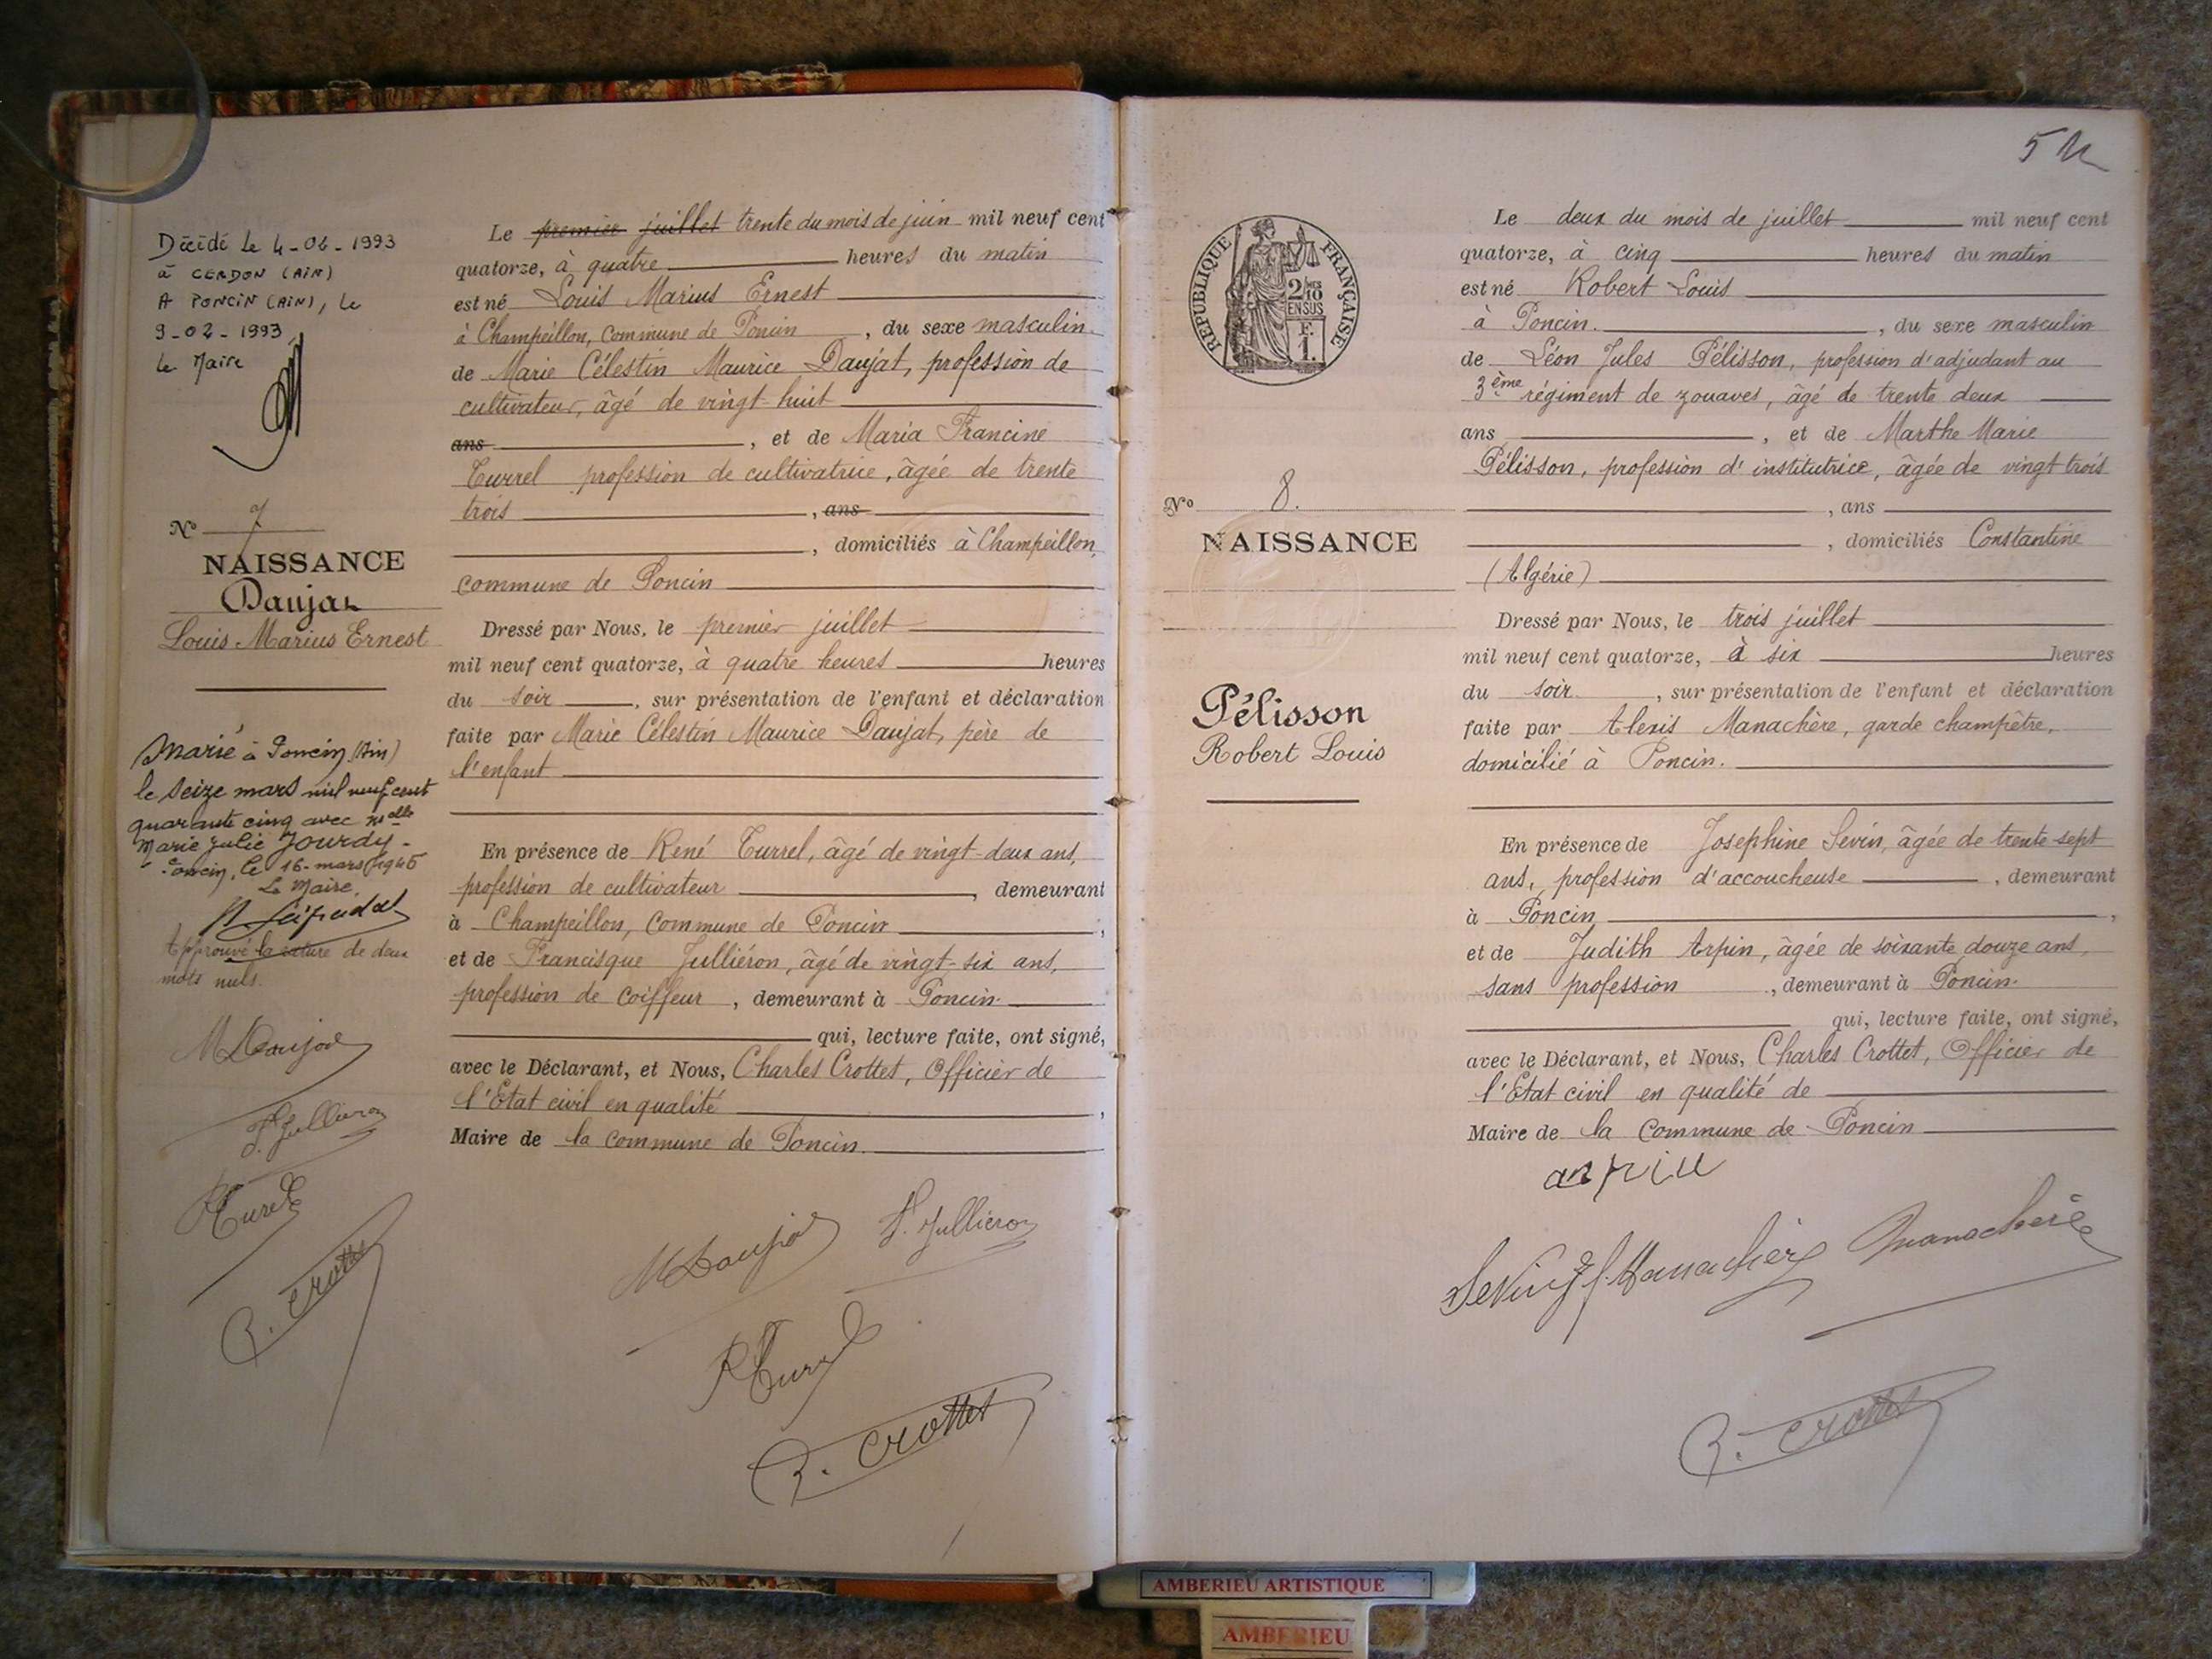 Décédé le 4-06-1993
à CERDON (AIN)
A PONCIN (AIN), le
9-02-1993
le Maire
N° 7
NAISSANCE
Daujat
Louis Marius Ernest
Marié à Poncin (Ain)
le seize mars mil neuf cent
quarante cinq avec Melle
Marie Julie Jourdy -
Poncin, le 16 mars 1945
Le Maire,
Approuvé la rature de deux
mots nuls.
M Daujat
F. Jullieron
R Turrel
C. Crottet
Le premier juillet trente du mois de juin mil neuf cent
quatorze, à quatre heures du matin
est né Louis Marius Ernest
à Champeillon, commune de Poncin, du sexe masculin
de Marie Célestin Maurice Daujat, profession de
cultivateur, âgé de vingt-huit
ans, et de Maria Francine
Turrel profession de cultivatrice, âgée de trente
trois, ans
, domiciliés à Champeillon,
commune de Poncin
Dressé par Nous, le premier juillet
mil neuf cent quatorze, à quatre heures heures
du soir, sur présentation de l'enfant et déclaration
faite par Marie Célestin Maurice Daujat, père de
l'enfant
En présence de René Turrel, âgé de vingt-deux ans,
profession de cultivateur, demeurant
à Champeillon, commune de Poncin,
et de Francisque Julliéron, âgé de vingt-six ans,
profession de coiffeur, demeurant à Poncin.
qui, lecture faite, ont signé,
avec le Déclarant, et Nous, Charles Crottet, Officier de
l'Etat civil en qualité,
Maire de la commune de Poncin.
M Daujat F. Jullieron
R Turrel
C. Crottet
5
REPUBLIQUE FRANÇAISE
2/10 MES
EN SUS
F.
1.
N° 8.
NAISSANCE
Pélisson
Robert Louis
Le deux du mois de juillet mil neuf cent
quatorze, à cinq heures du matin
est né Robert Louis
à Poncin., du sexe masculin
de Léon Jules Pélisson, profession d'adjudant au
3ème régiment de zouaves, âgé de trente deux
ans, et de Marthe Marie
Pélisson, profession d'institutrice, âgée de vingt trois
, ans
, domiciliés Constantine
(Algérie)
Dressé par Nous, le trois juillet
mil neuf cent quatorze, à six heures
du soir, sur présentation de l'enfant et déclaration
faite par Alexis Manachère, garde champêtre,
domicilié à Poncin.
En présence de Josephine Sevin, âgée de trente-sept
ans, profession d'accoucheuse, demeurant
à Poncin,
et de Judith Arpin, âgée de soixante douze ans,
sans profession, demeurant à Poncin.
qui, lecture faite, ont signé,
avec le Déclarant, et Nous, Charles Crottet, Officier de
l'Etat civil en qualité de
Maire de la commune de Poncin
arpin
Sevin f. Manachère Manachère
C. Crottet
AMBERIEU ARTISTIQUE
AMBERIEU